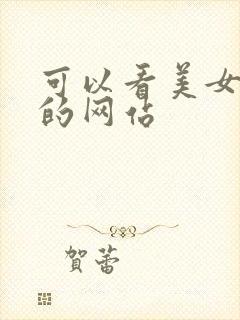 可以看美女
的网站
贺蕾